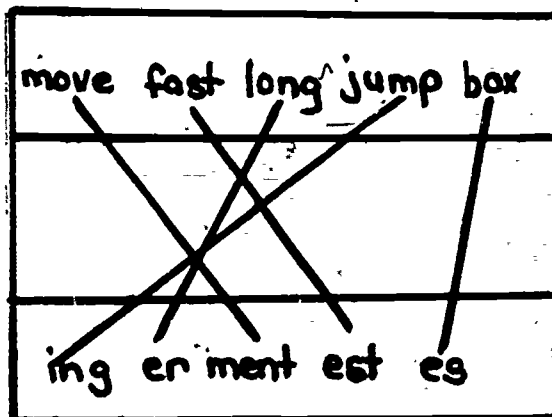 move fast long jump box
ing er ment est es